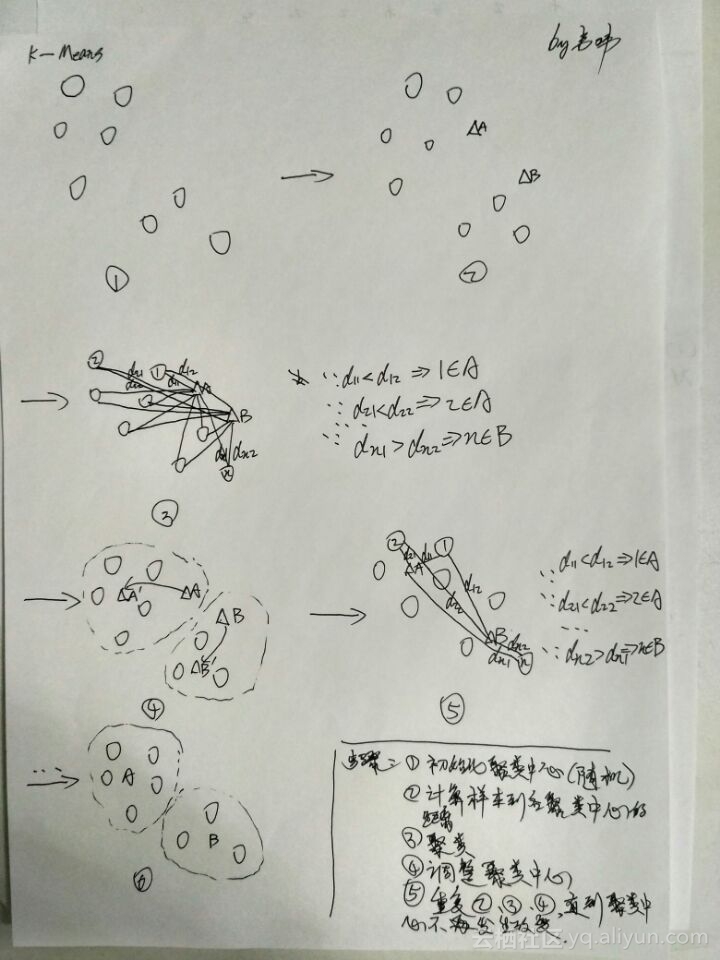 K-Means
by
△A
△B
①
②
② d21 ① d12
d22 d11 △A
△B
dn1 dn2
n
③
∵ d11<d12 ⇒ 1∈A
∵ d21<d22 ⇒ 2∈A
∵ dn1>dn2 ⇒ n∈B
△A' △A
△B
△B'
④
② ①
d21 d11
△A
d12
d22
△B
dn2
dn1 n
⑤
∵ d11<d12 ⇒ 1∈A
∵ d21<d22 ⇒ 2∈A
...
∵ dn2>dn1 ⇒ n∈B
A
B
⑥
步骤: ① 初始化聚类中心(随机)
② 计算样本到各聚类中心的
距离
③ 聚类
④ 调整聚类中心
⑤ 重复②、③、④,直到聚类中
心不再发生改变.
云栖社区 yq.aliyun.com